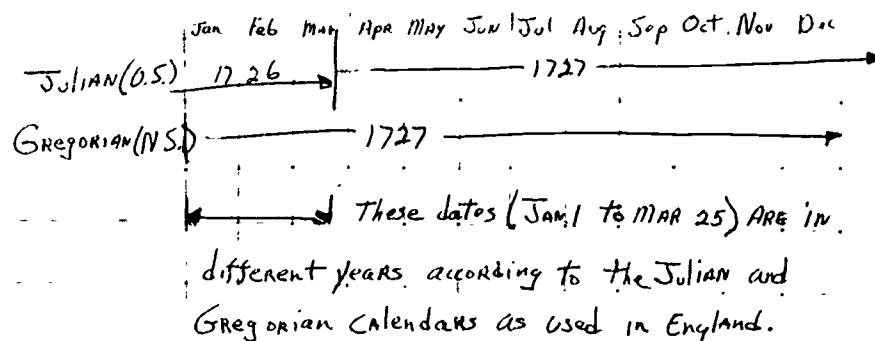 Jan Feb Mar Apr May Jun Jul Aug Sep Oct Nov Dec
Julian (O.S.) 1726 1727
Gregorian (N.S.) 1727
These dates (Jan 1 to Mar 25) are in
different years according to the Julian and
Gregorian calendars as used in England.